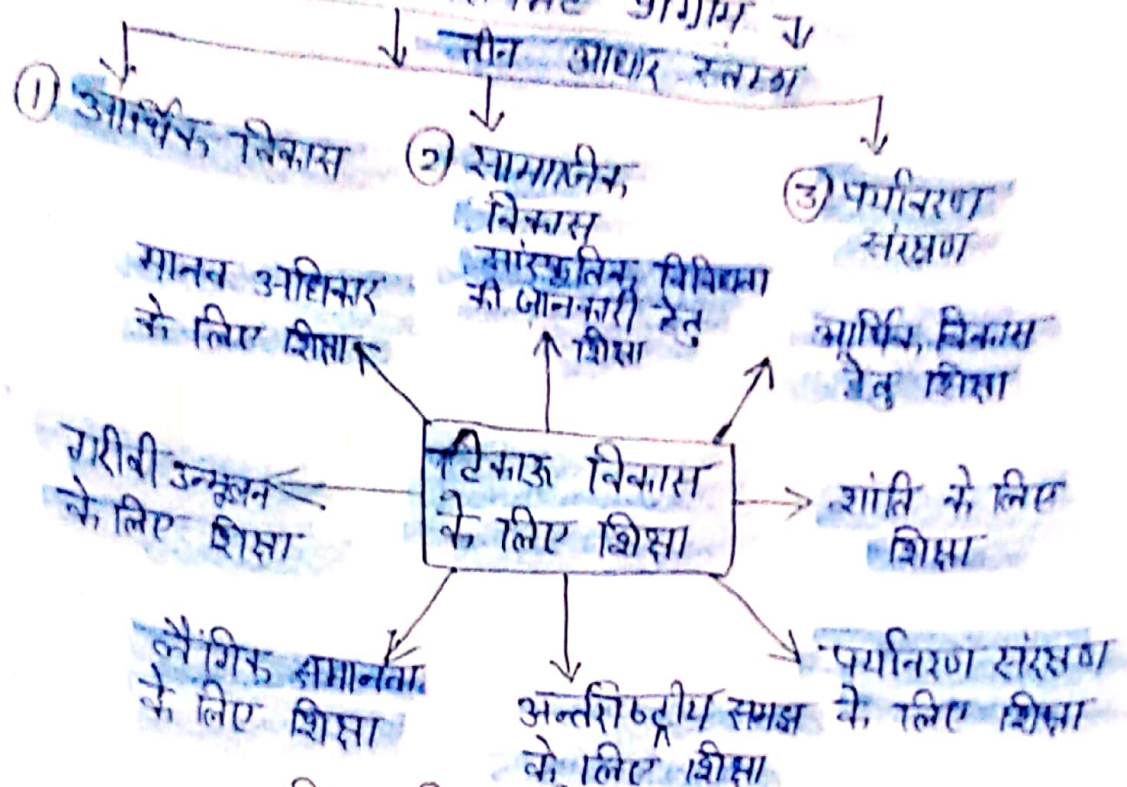 तीन आधार स्तम्भ
① आर्थिक विकास
② सामाजिक
विकास
③ पर्यावरण
संरक्षण
मानव अधिकार
के लिए शिक्षा
सांस्कृतिक विविधता
की जानकारी हेतु
शिक्षा
आर्थिक विकास
हेतु शिक्षा
गरीबी उन्मूलन
के लिए शिक्षा
टिकाऊ विकास
के लिए शिक्षा
शांति के लिए
शिक्षा
लैंगिक समानता
के लिए शिक्षा
अन्तर्राष्ट्रीय समझ
के लिए शिक्षा
पर्यावरण संरक्षण
के लिए शिक्षा